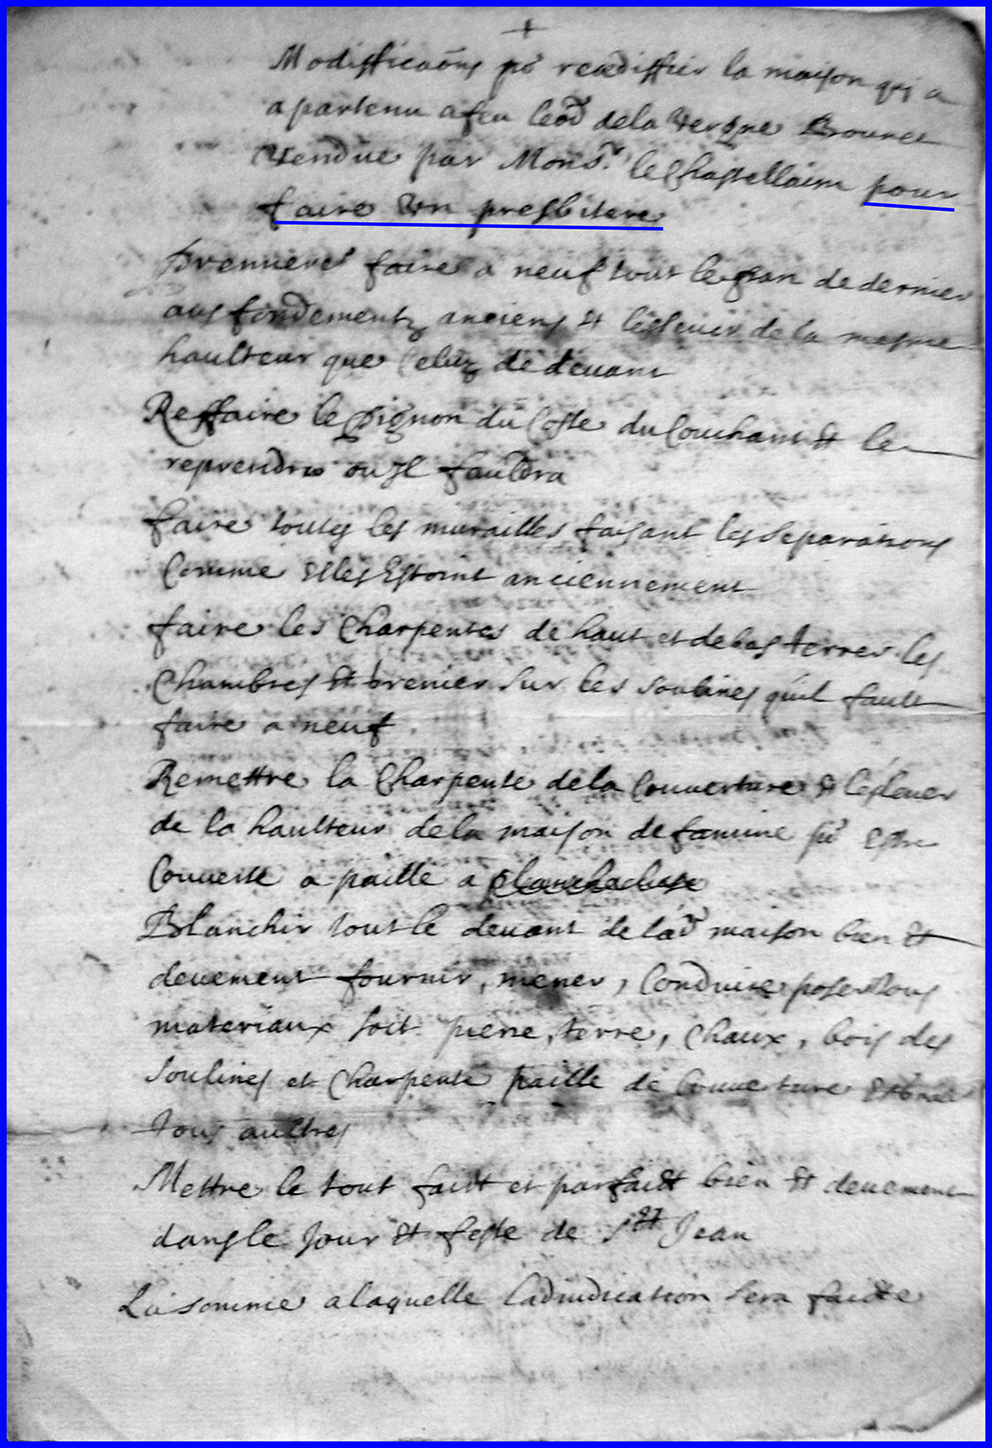 Modifficaōns po.r reediffier la maison qui a
apartenu a feu Leod de la Vergne
Vendue par Mons.r le Chastellain pour
faire Un presbitere
Premieremt faire a neuf tout le pan de dernier
aus fondementz anciens et leslever de la mesme
haulteur que Celuy de devant
Reffaire le pignon du Coste du Couchant et le
reprendre ou Il fauldra
faire toutes les murailles faisant les separations
Comme Elles Estoint anciennement
faire les Charpentes de haut et de bas terrer les
Chambres et Grenier sur les soulines quil fault
faire a neuf
Remettre la Charpente de la Couverture & leslever
de la haulteur de la maison de po.r Estre
Couverte a paille a
Blanchir tout le devant de lad maison bien et
deuement fournir, mener, Conduire poser tous
materiaux soit pierre, terre, Chaux, bois des
soulines et Charpente paille de Couverture
Tous aultres
Mettre le tout faict et parfaict bien et deuement
dans le Jour et feste de St Jean
La somme a laquelle Ladiudication sera faicte